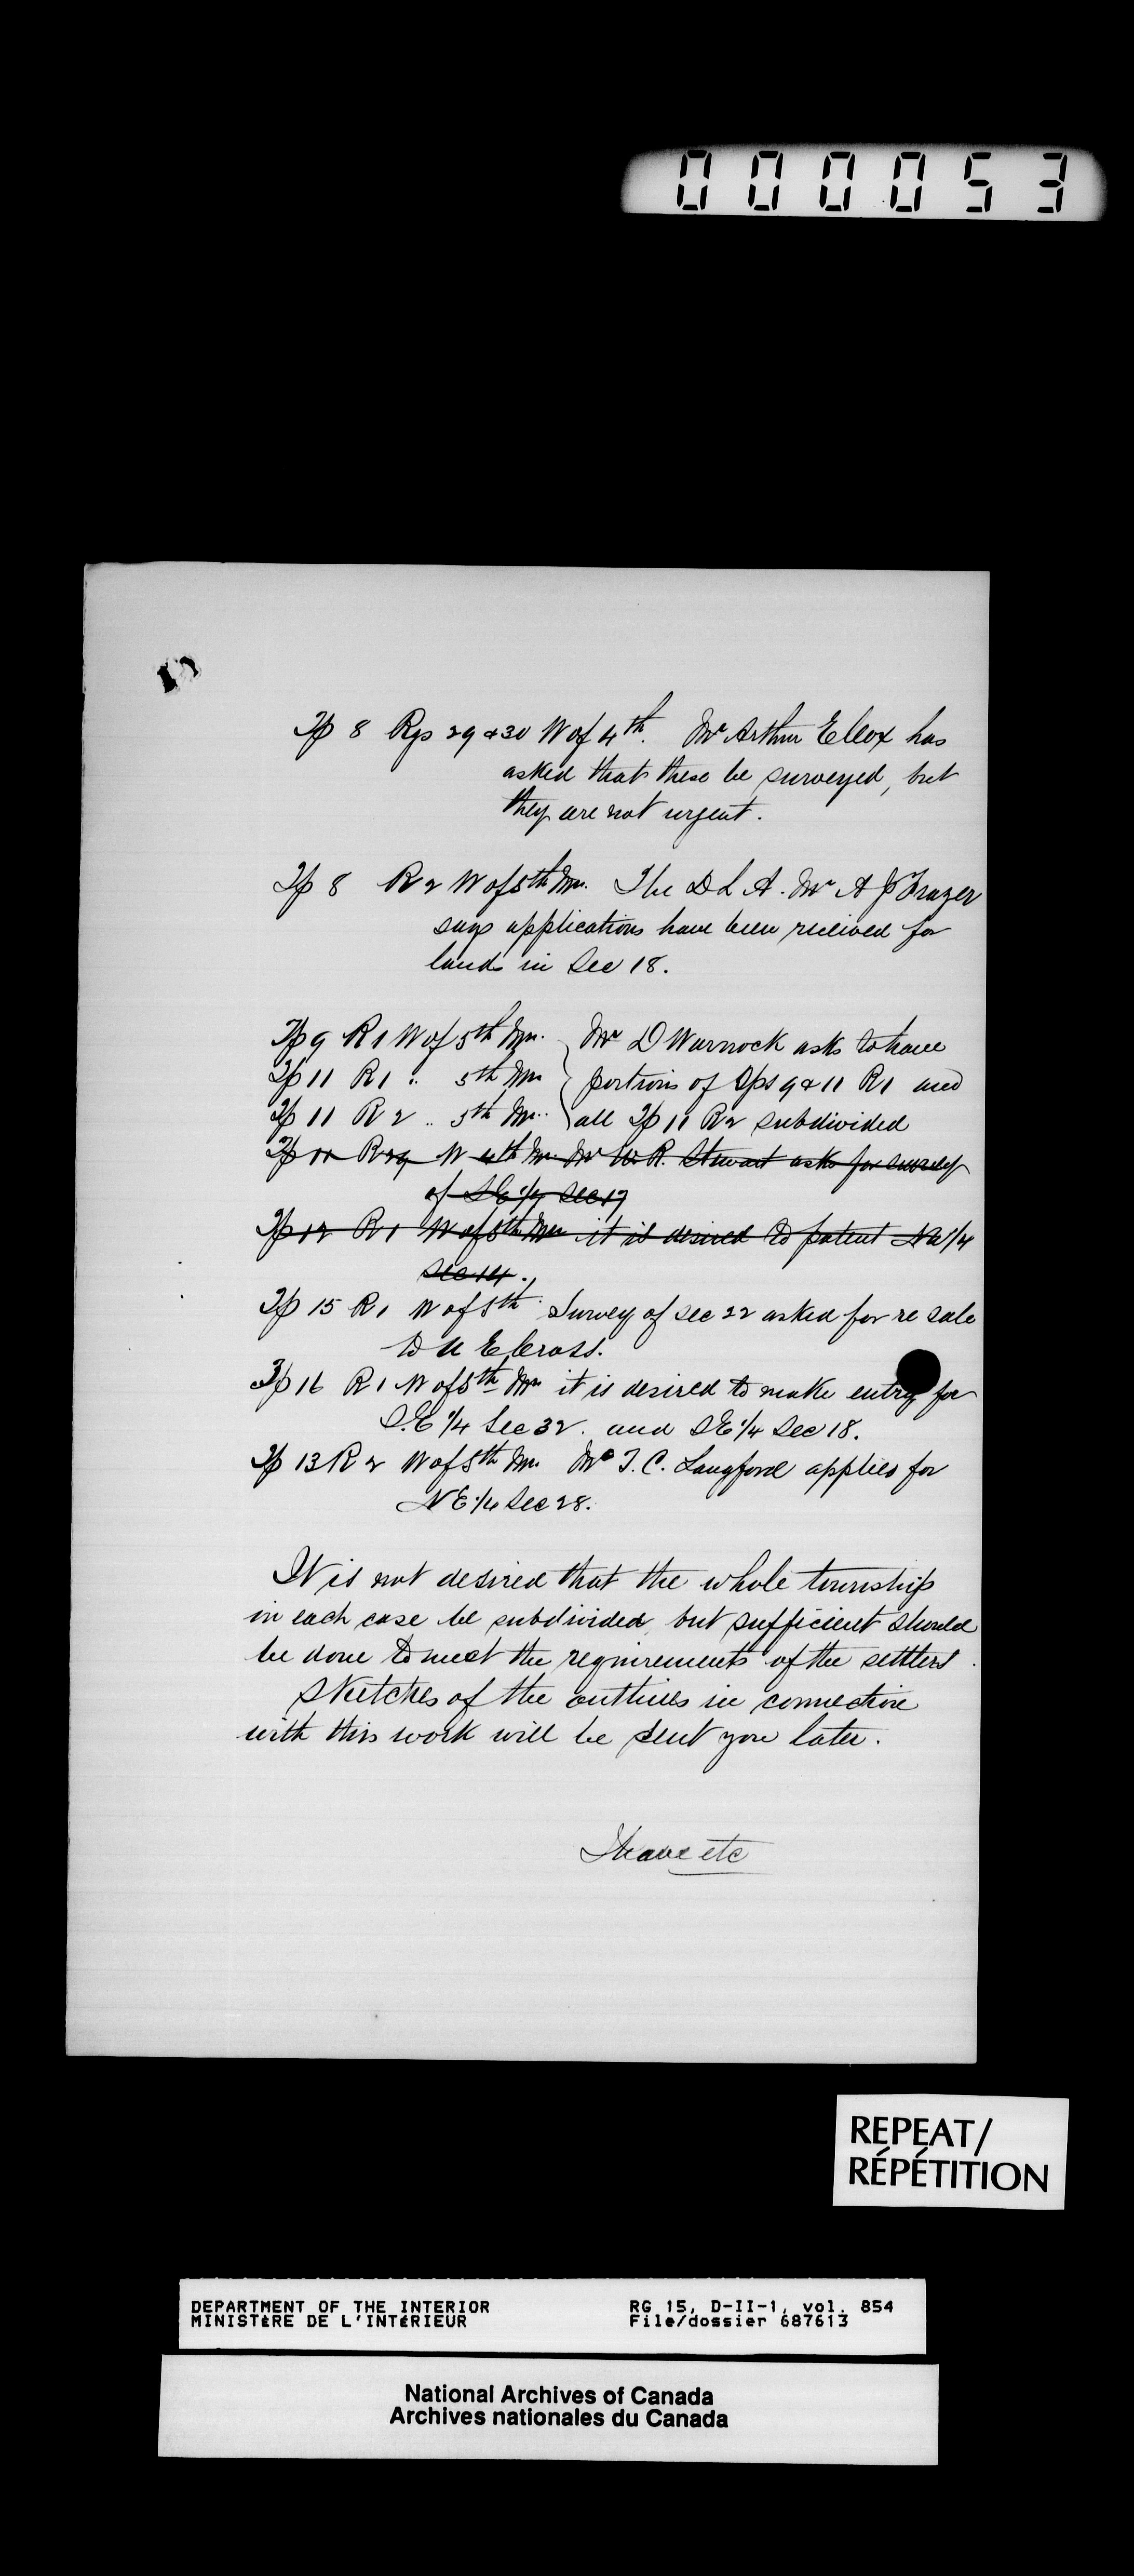 000053
Tp 8 Rgs 29 & 30 W of 4th. Mr Arthur E Cox has
asked that these be surveyed, but
they are not urgent.
Tp 8 R 2 W of 5th Mn. The D L A. Mr A J Frazer
says applications have been received for
lands in Sec 18.
Tp 9 R 1 W of 5th Mn. Mr D Warnock asks to have
Tp 11 R 1 .. 5th Mn portions of Tps 9 & 11 R1 and
Tp 11 R 2 .. 5th Mn.. all Tp 11 R2 subdivided
Tp 11 R 29 W 4th Mn Mr W. R. Stewart asks for survey
of S E 1/4 Sec 17
Tp 12 R 1 W of 5th Mn it is desired to patent NW 1/4
Sec 14.
Tp 15 R 1 W of 5th Survey of Sec 22 asked for re sale
to E Cross.
Tp 16 R 1 W of 5th Mn it is desired to make entry for
S.E 1/4 Sec 32. and S E 1/4 Sec 18.
Tp 13 R 2 W of 5th Mn. Mr T. C. Langford applies for
N E 1/4 Sec 28.
It is not desired that the whole township
in each case be subdivided, but sufficient should
be done to meet the requirements of the settlers.
Sketches of the outlines in connection
with this work will be sent you later.
I have etc
REPEAT/
RÉPÉTITION
DEPARTMENT OF THE INTERIOR RG 15, D-II-1, vol. 854
MINISTÈRE DE L'INTÉRIEUR File/dossier 687613
National Archives of Canada
Archives nationales du Canada